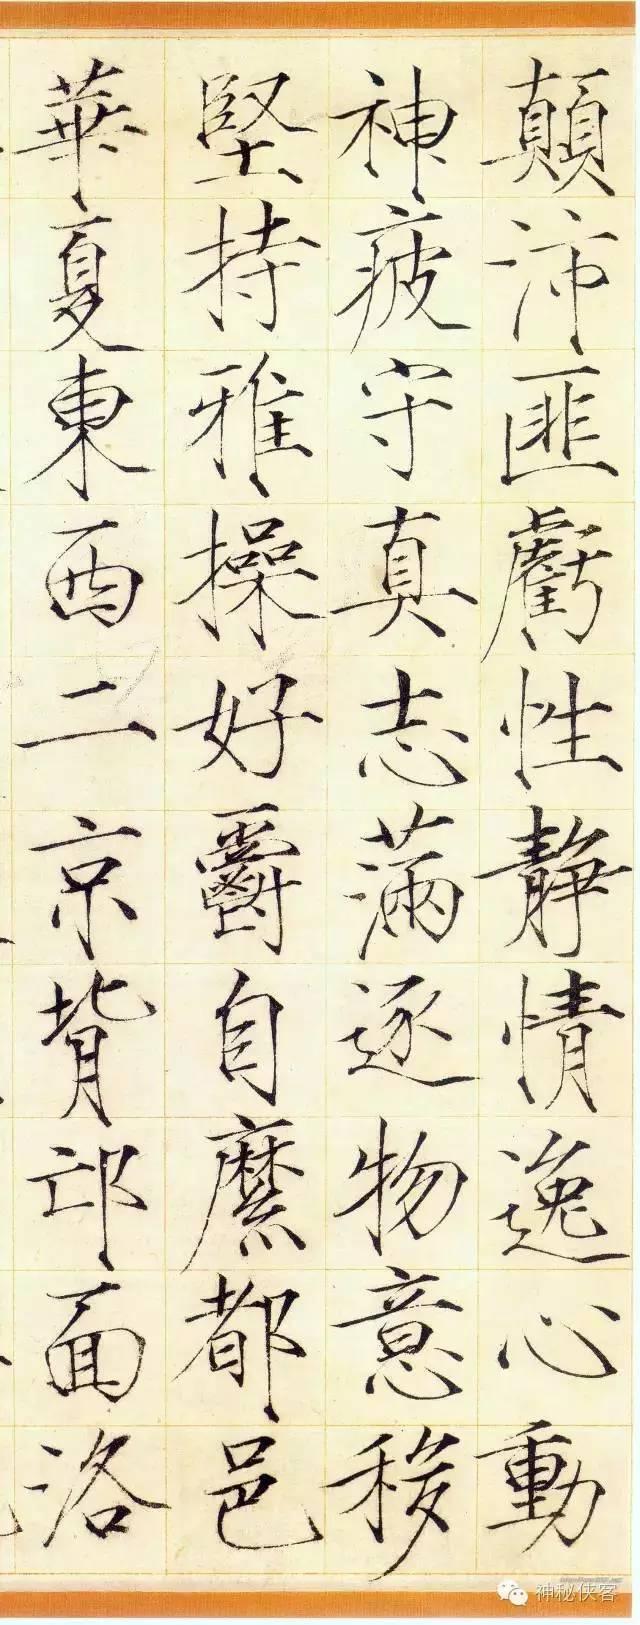 顛沛匪虧性靜情逸心動
神疲守真志滿逐物意移
堅持雅操好爵自縻都邑
華夏東西二京背邙面洛
神秘侠客